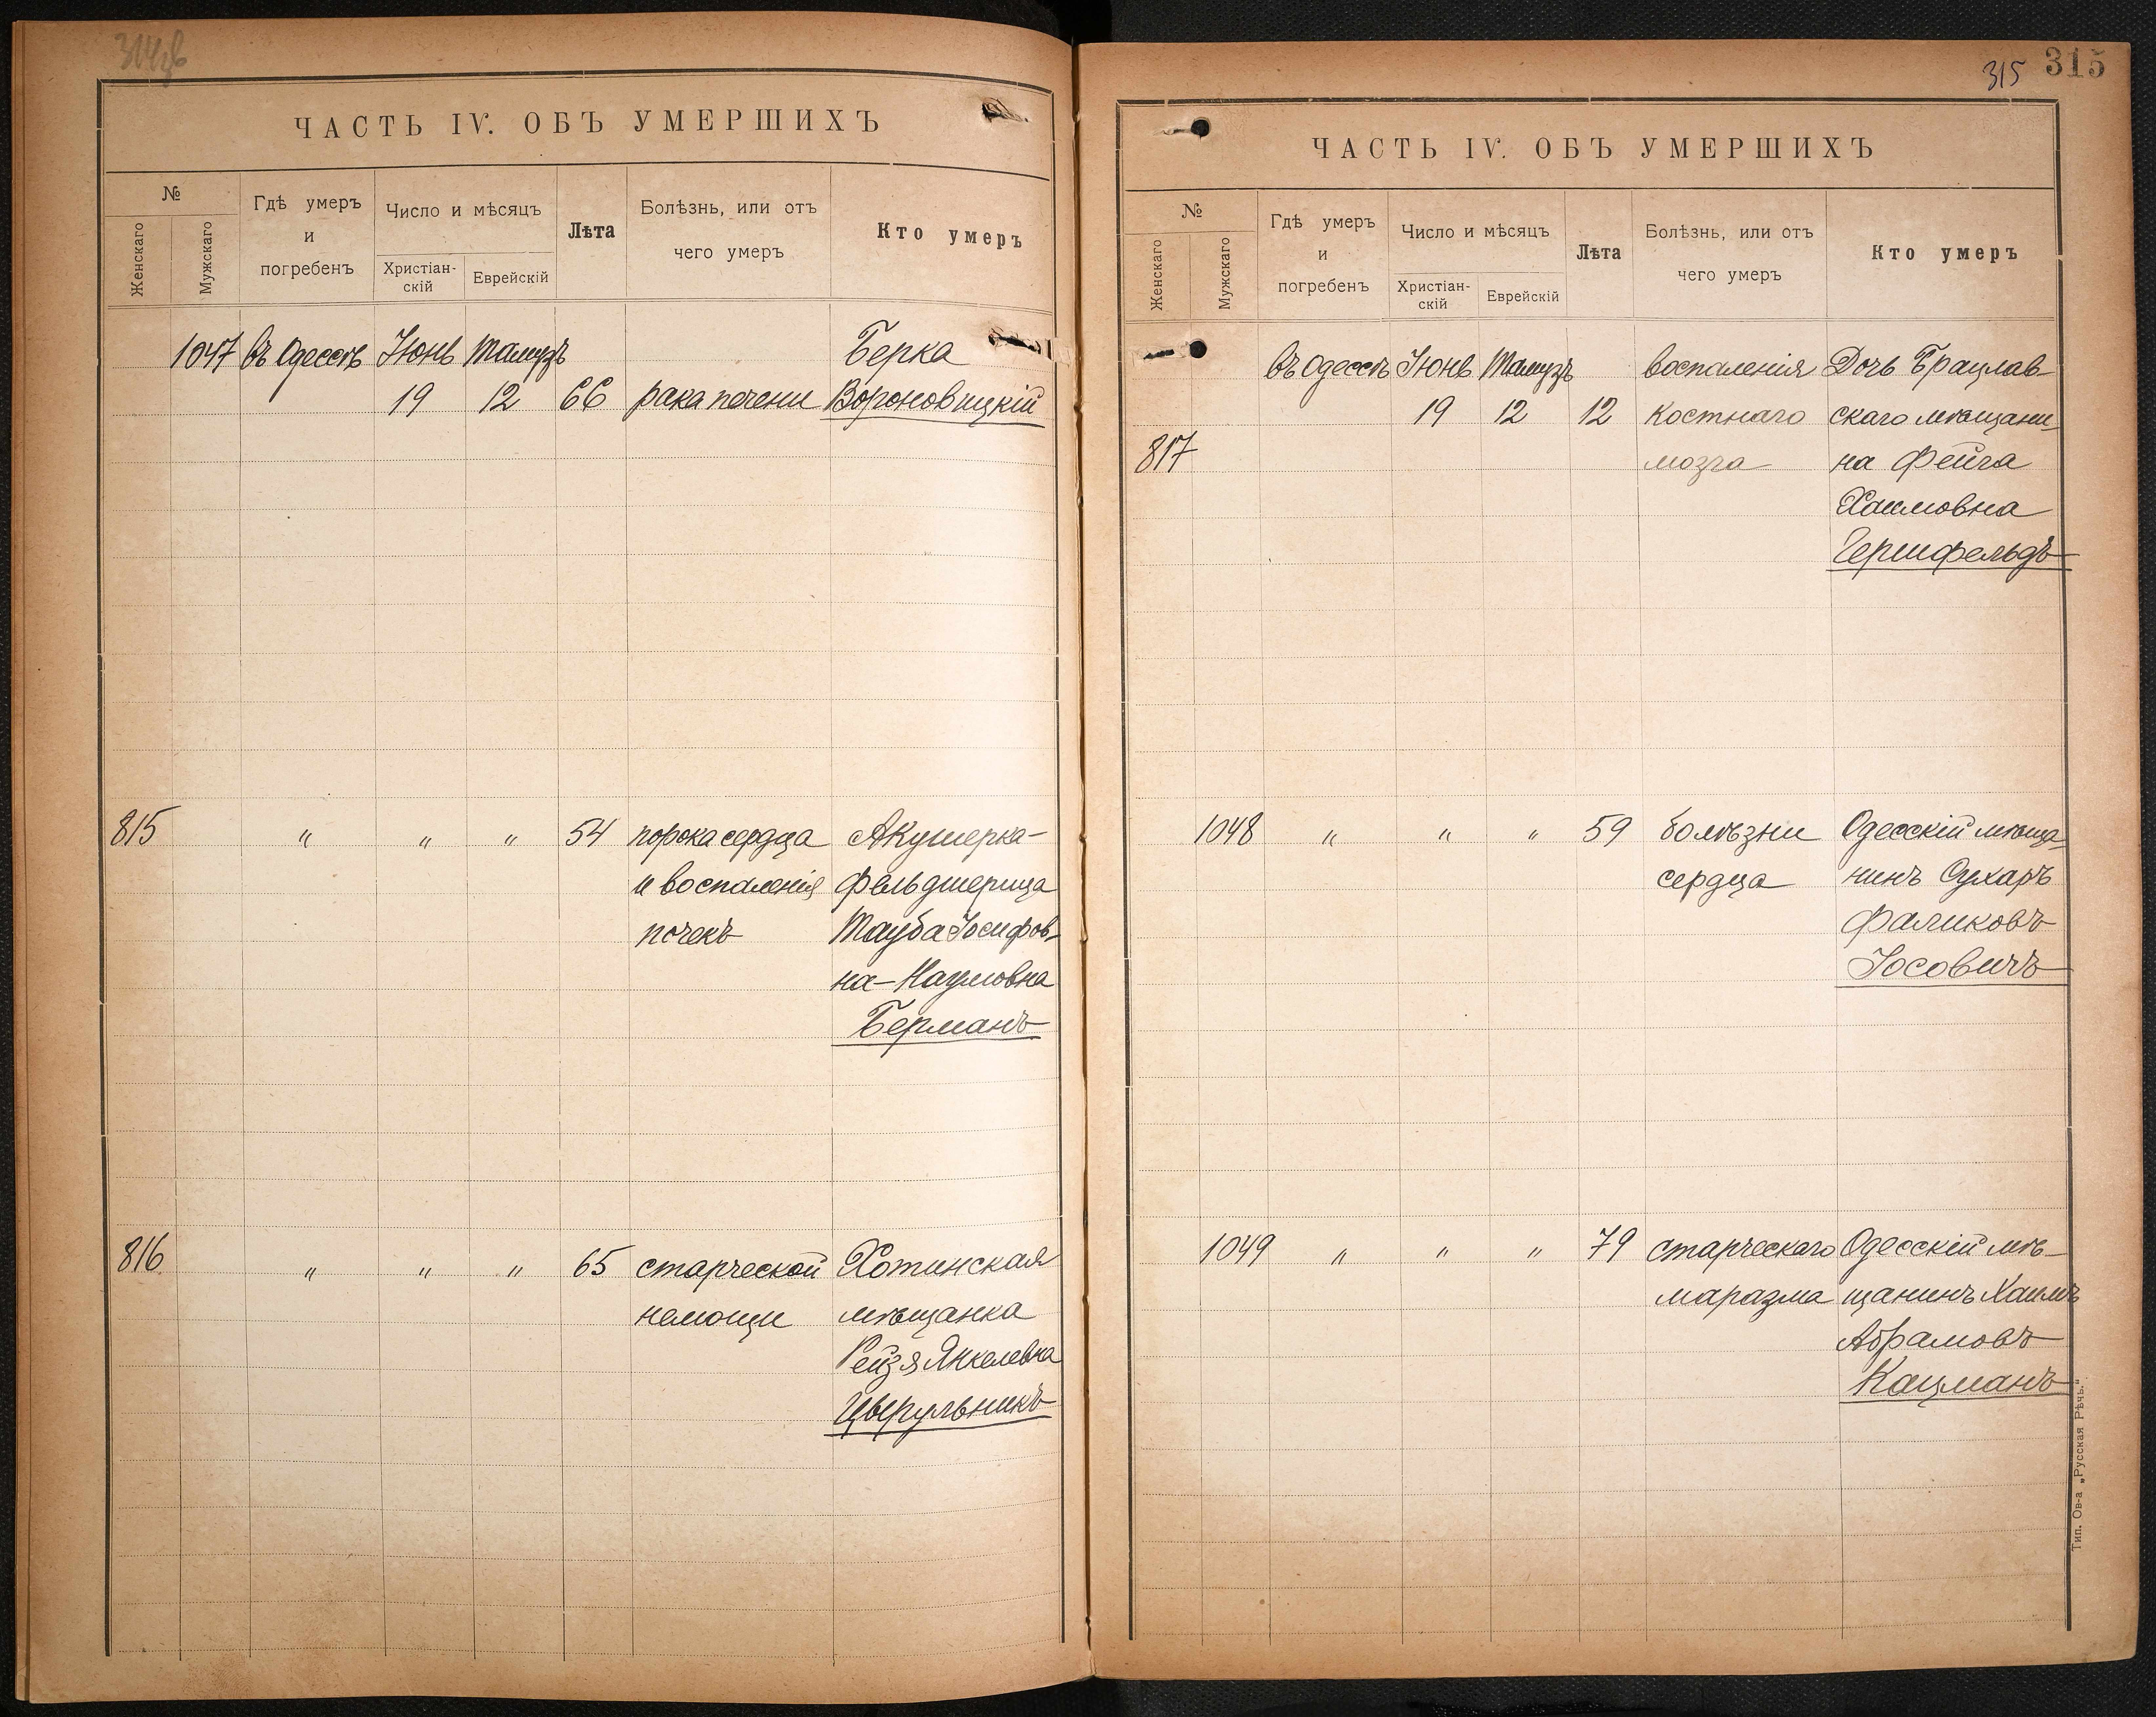 ЧАСТЬ IV. ОБЪ УМЕРШИХЪ
№
Женскаго
Мужскаго
Гдѣ умеръ
и
погребенъ
Число и мѣсяцъ
Христіан-
скій
Еврейскій
Лѣта
Болѣзнь, или отъ
чего умеръ
Кто умеръ
1047 въ Одессѣ Іюнь Тамузъ Берка
19 12 66 рака печени Вороновицкій
815 " " " 54 порока сердца Акушерка-
и воспаленія фельдшерица
почекъ Тауба Іосифов-
на-Наумовна
Берманъ
816 " " " 65 старческой Хотинская
немощи мѣщанка
Рейзя Янкелевна
Цырульникъ
315 315
ЧАСТЬ IV. ОБЪ УМЕРШИХЪ
№
Женскаго
Мужскаго
Гдѣ умеръ
и
погребенъ
Число и мѣсяцъ
Христіан-
скій
Еврейскій
Лѣта
Болѣзнь, или отъ
чего умеръ
Кто умеръ
въ Одессѣ Іюнь Тамузъ воспаленія Дочь Брацлав-
19 12 12 костнаго скаго мѣщани-
817 мозга на Фейга
Хаимовна
Гершфельдъ
1048 " " " 59 болѣзни Одесскій мѣща-
сердца нинъ Сухаръ
Фаликовъ
Іосовичъ
1049 " " " 79 старческаго Одесскій мѣ-
маразма щанинъ Хаимъ
Абрамовъ
Кацманъ
Тип. Ов-а „Русская Рѣчь."